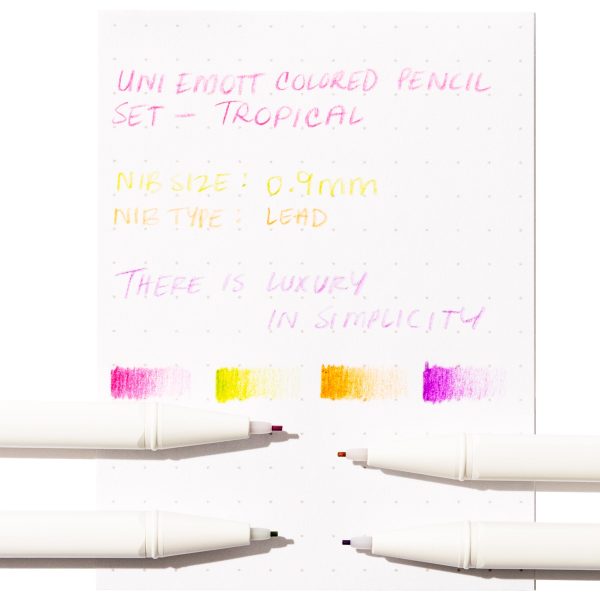 UNI EMOTT COLORED PENCIL
SET - TROPICAL
NIB SIZE: 0.9mm
NIB TYPE: LEAD
THERE IS LUXURY
IN SIMPLICITY